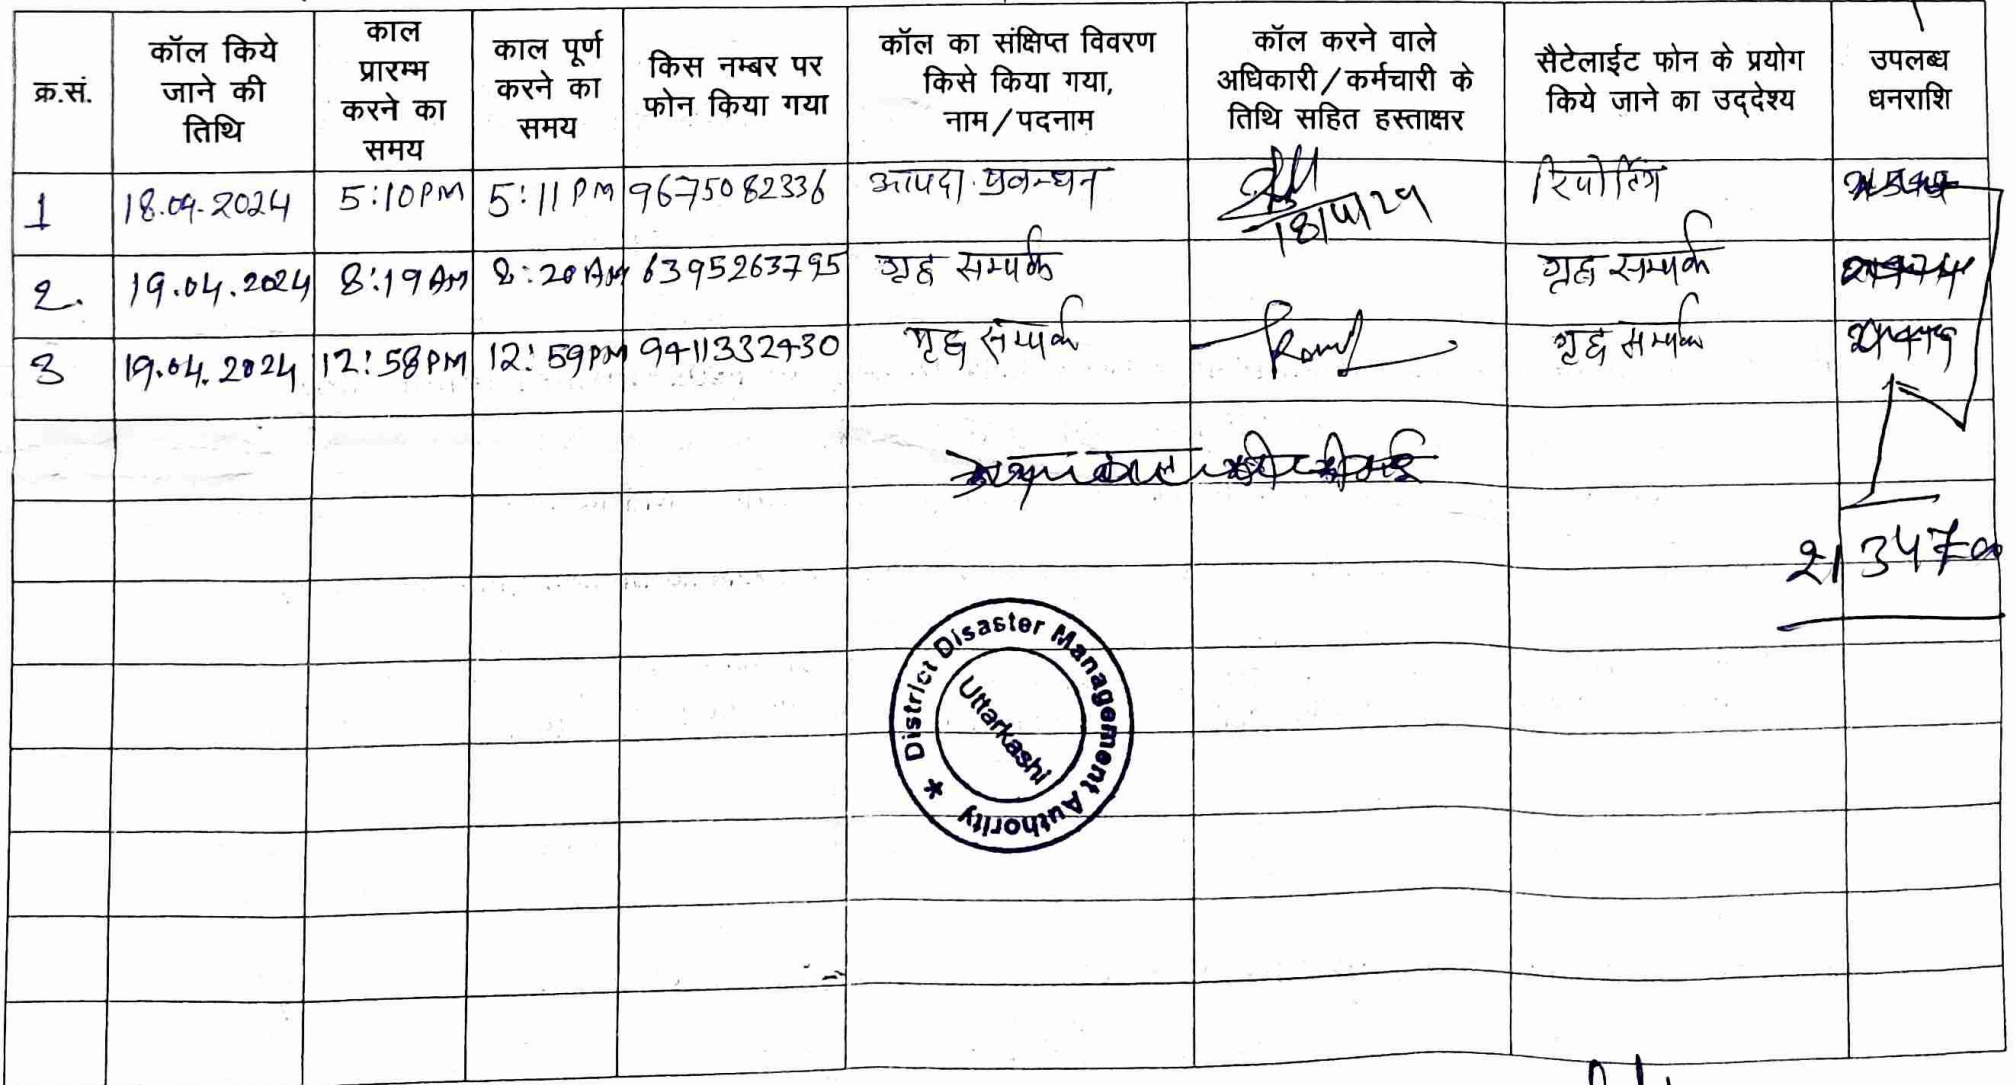 क्र.सं.
कॉल किये जाने की तिथि
काल प्रारम्भ करने का समय
काल पूर्ण करने का समय
किस नम्बर पर फोन किया गया
कॉल का संक्षिप्त विवरण किसे किया गया, नाम/पदनाम
कॉल करने वाले अधिकारी/कर्मचारी के तिथि सहित हस्ताक्षर
सैटेलाईट फोन के प्रयोग किये जाने का उद्देश्य
उपलब्ध धनराशि
1 18.04.2024 5:10PM 5:11PM 9675082336 आपदा प्रबन्धन 18/4/24 रिपोर्टिंग
2. 19.04.2024 8:19AM 8:20AM 6395263795 गृह सम्पर्क गृह सम्पर्क
3 19.04.2024 12:58PM 12:59PM 9411332430 गृह सम्पर्क गृह सम्पर्क
21347
District Disaster Management Authority
Uttarkashi